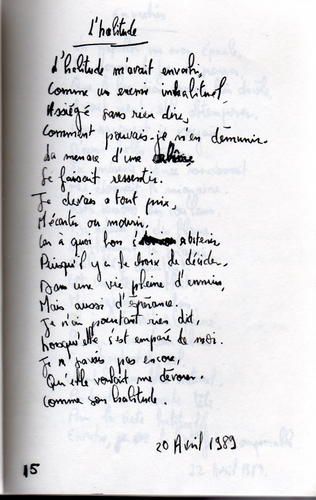 L'habitude
L'habitude m'avait envahi,
Comme un ennemi inhabituel,
Assiégé sans rien dire,
Comment pouvais-je m'en démunir.
La menace d'une
Se faisait ressentir.
Je devais a tout prix,
M'écarter ou mourir,
Car à quoi bon s'abstenir,
Puisqu'il y a le choix de décider,
Dans une vie pleine d'ennuis,
Mais aussi d'Espérance.
Je n'ai pourtant rien dit,
Lorsqu'elle s'est emparé de moi.
Je n'savais pas encore,
Qu'elle voulait me dévorer.
Comme son habitude.
20 Avril 1989
15